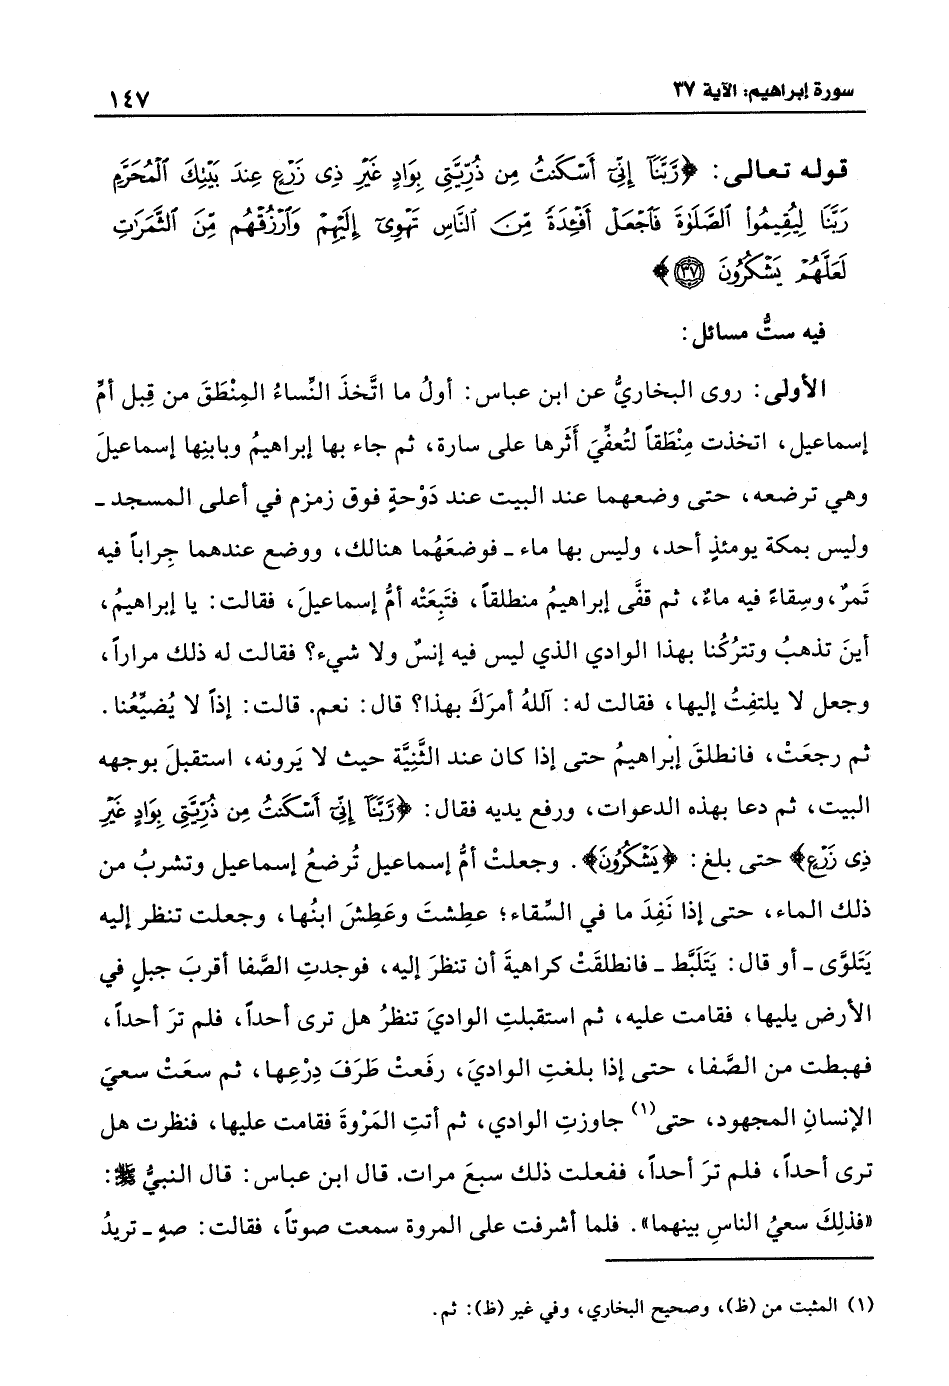 سورة إبراهيم: الآية ٣٧
١٤٧
قوله تعالى: ﴿رَّبَّنَآ إِنِّىٓ أَسْكَنتُ مِن ذُرِّيَّتِى بِوَادٍ غَيْرِ ذِى زَرْعٍ عِندَ بَيْتِكَ ٱلْمُحَرَّمِ
رَبَّنَا لِيُقِيمُوا۟ ٱلصَّلَوٰةَ فَٱجْعَلْ أَفْـِٔدَةً مِّنَ ٱلنَّاسِ تَهْوِىٓ إِلَيْهِمْ وَٱرْزُقْهُم مِّنَ ٱلثَّمَرَٰتِ
لَعَلَّهُمْ يَشْكُرُونَ ٣٧﴾
فيه ستُّ مسائل:
الأولى: روى البخاريُّ عن ابن عباس: أولُ ما اتَّخذَ النِّساءُ المِنْطَقَ من قِبل أمِّ
إسماعيل، اتخذت مِنْطَقاً لتُعفِّيَ أَثَرها على سارة، ثم جاء بها إبراهيمُ وبابنِها إسماعيلَ
وهي ترضعه، حتى وضعهما عند البيت عند دَوْحةٍ فوق زمزم في أعلى المسجد ـ
وليس بمكة يومئذٍ أحد، وليس بها ماء ـ فوضعَهُما هنالك، ووضع عندهما جِراباً فيه
تَمرٌ، وسِقاءً فيه ماءٌ، ثم قفَّى إبراهيمُ منطلقاً، فتَبِعَتْه أمُّ إسماعيلَ، فقالت: يا إبراهيمُ،
أينَ تذهبُ وتترُكُنا بهذا الوادي الذي ليس فيه إنسٌ ولا شيء؟ فقالت له ذلك مراراً،
وجعل لا يلتفِتُ إليها، فقالت له: آللهُ أمرَكَ بهذا؟ قال: نعم. قالت: إذاً لا يُضيِّعُنا.
ثم رجعَتْ، فانطلقَ إبراهيمُ حتى إذا كان عند الثَّنِيَّة حيث لا يَرونه، استقبلَ بوجهه
البيت، ثم دعا بهذه الدعوات، ورفع يديه فقال: ﴿رَّبَّنَآ إِنِّىٓ أَسْكَنتُ مِن ذُرِّيَّتِى بِوَادٍ غَيْرِ
ذِى زَرْعٍ﴾ حتى بلغ: ﴿يَشْكُرُونَ﴾. وجعلتْ أمُّ إسماعيل تُرضعُ إسماعيل وتشربُ من
ذلك الماء، حتى إذا نَفِدَ ما في السِّقاء؛ عطِشتَ وعَطِشَ ابنُها، وجعلت تنظر إليه
يَتَلوَّى ـ أو قال: يَتَلَبَّط ـ فانطلقَتْ كراهيةَ أن تنظرَ إليه، فوجدتِ الصَّفا أقربَ جبلٍ في
الأرض يليها، فقامت عليه، ثم استقبلتِ الواديَ تنظرُ هل ترى أحداً، فلم ترَ أحداً،
فهبطت من الصَّفا، حتى إذا بلغتِ الواديَ، رفَعتْ طَرَفَ دِرْعِها، ثم سعَتْ سعيَ
الإنسانِ المجهود، حتى(١) جاوزتِ الوادي، ثم أتتِ المَرْوةَ فقامت عليها، فنظرت هل
ترى أحداً، فلم ترَ أحداً، ففعلت ذلك سبعَ مرات. قال ابن عباس: قال النبيُّ ﷺ:
«فذلِكَ سعيُ الناسِ بينهما». فلما أشرفت على المروة سمعت صوتاً، فقالت: صهٍ ـ تريدُ
(١) المثبت من (ظ)، وصحيح البخاري، وفي غير (ظ): ثم.